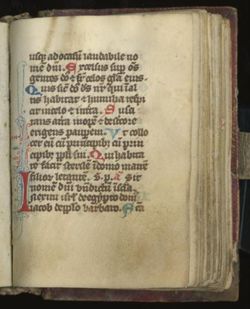 usq; ad occasū laudabile no
mē dn̄i. Excelsus sup oēs
gentes dn̄s & sup celos glīa eius.
Quis sic̄ dn̄s ds̄ nr̄ qui in al
tis habitat & humilia respi
cit in celo & in terra. Susci
tans a terra inopē & de stercore
erigens paupem. Vt collo
cet eū cū principib; cū prin
cipib; ppli sui. Qui habita
re facit sterilē in domo matrē
filior letantē. Sit
nomen dn̄i
In exitu isrl de egypto dom;
iacob de pplo barbaro.